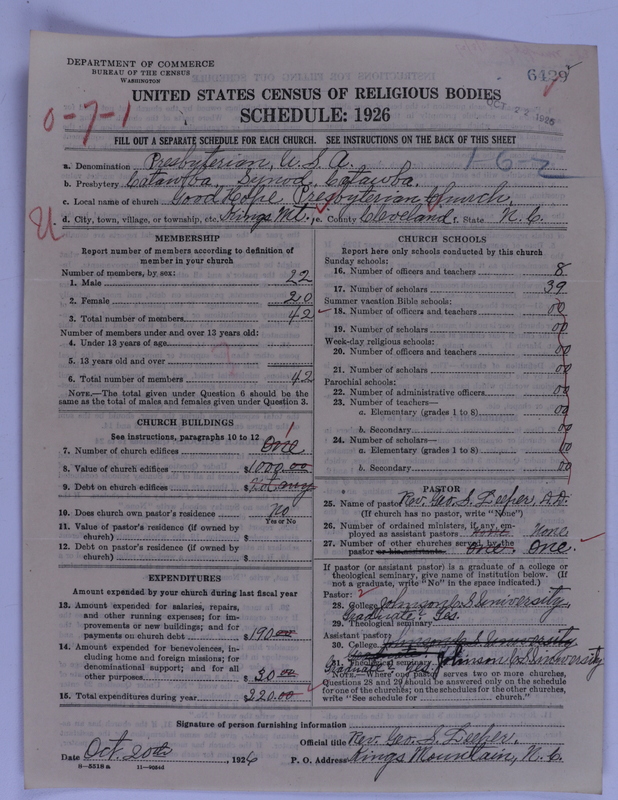 DEPARTMENT OF COMMERCE
BUREAU OF THE CENSUS
WASHINGTON
6429
UNITED STATES CENSUS OF RELIGIOUS BODIES
OCT 22 1926
SCHEDULE: 1926
0-7-1
FILL OUT A SEPARATE SCHEDULE FOR EACH CHURCH. SEE INSTRUCTIONS ON THE BACK OF THIS SHEET
1-6-2
a. Denomination Presbyterian, U. S. A.
b. Presbytery Catawba, Synod, Catawba.
c. Local name of church Good Hope Presbyterian Church,
d. City, town, village, or township, etc. Kings Mt. e. County Cleveland f. State N. C.
MEMBERSHIP
Report number of members according to definition of
member in your church
Number of members, by sex:
1. Male 22
2. Female 20
3. Total number of members 42
Number of members under and over 13 years old:
4. Under 13 years of age
5. 13 years old and over
6. Total number of members 42
NOTE.—The total given under Question 6 should be
same as the total of males and females given under Question 3.
CHURCH BUILDINGS
See instructions, paragraphs 10 to 12
7. Number of church edifices One 1
8. Value of church edifices $1000.00
9. Debt on church edifices $ Not any
10. Does church own pastor's residence? No
Yes or No
11. Value of pastor's residence (if owned by
church) $
12. Debt on pastor's residence (if owned by
church) $
EXPENDITURES
Amount expended by your church during last fiscal year
13. Amount expended for salaries, repairs,
and other running expenses; for im-
provements or new buildings; and for
payments on church debt $190.00
14. Amount expended for benevolences, in-
cluding home and foreign missions; for
denominational support; and for all
other purposes $30.00
15. Total expenditures during year $220.00
CHURCH SCHOOLS
Report here only schools conducted by this church
Sunday schools:
16. Number of officers and teachers 8
17. Number of scholars 39
Summer vacation Bible schools:
18. Number of officers and teachers 00
19. Number of scholars 00
Week-day religious schools:
20. Number of officers and teachers 00
21. Number of scholars 00
Parochial schools:
22. Number of administrative officers 00
23. Number of teachers—
a. Elementary (grades 1 to 8) 00
b. Secondary 00
24. Number of scholars—
a. Elementary (grades 1 to 8) 00
b. Secondary 00
PASTOR
25. Name of pastor Rev. Geo. S. Leeper, D.D.
(If church has no pastor, write "None")
26. Number of ordained ministers, if any, em-
ployed as assistant pastors None. None.
27. Number of other churches served by the
pastor or his assistants One. One.
If pastor (or assistant pastor) is a graduate of a college or
theological seminary, give name of institution below. (If
not a graduate, write "No" in the space indicated.)
Pastor:
28. College Johnson C. S. University
29. Theological seminary Graduate, Yes.
Assistant pastor:
30. College Johnson C. S. University
31. Theological seminary Graduate, Yes, Johnson C. S. University
NOTE.—Where one pastor serves two or more churches,
Questions 28 and 29 should be answered only on the schedule
for one of the churches; on the schedules for the other churches,
write "See schedule for church."
Signature of person furnishing information
Official title Rev. Geo. S. Leeper,
Date Oct. 20th, 1926 P. O. Address Kings Mountain, N. C.
8—5518a 11—9024d